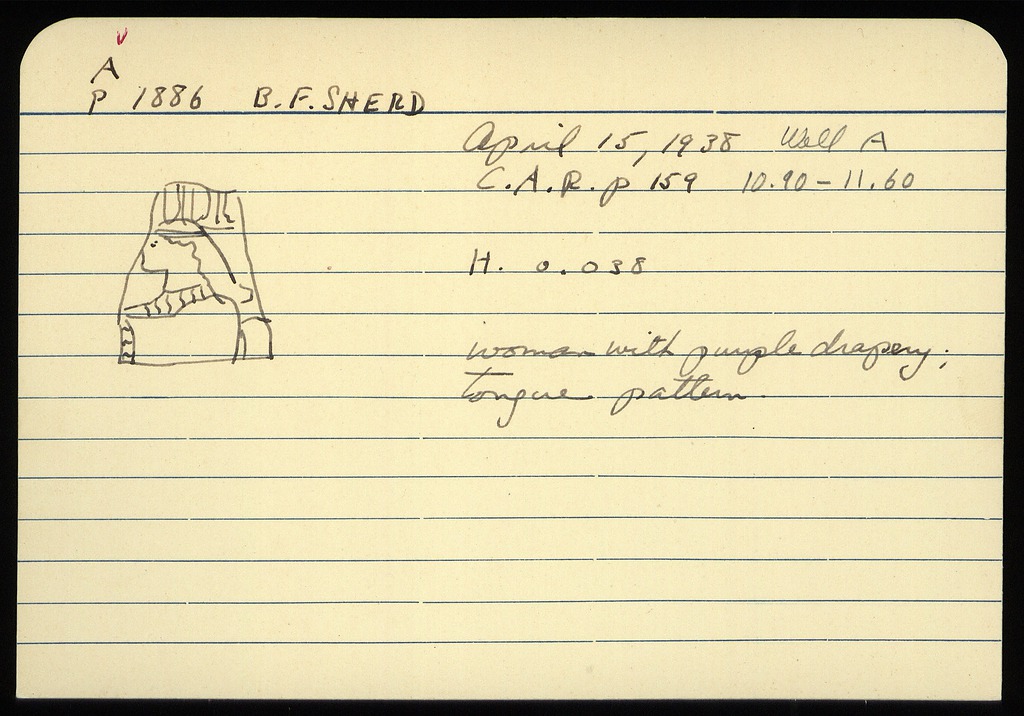 A
P 1886 B.F. SHERD
April 15, 1938 Well A
C.A.R. p 159 10.90-11.60
H. 0.038
woman with purple drapery;
tongue pattern.